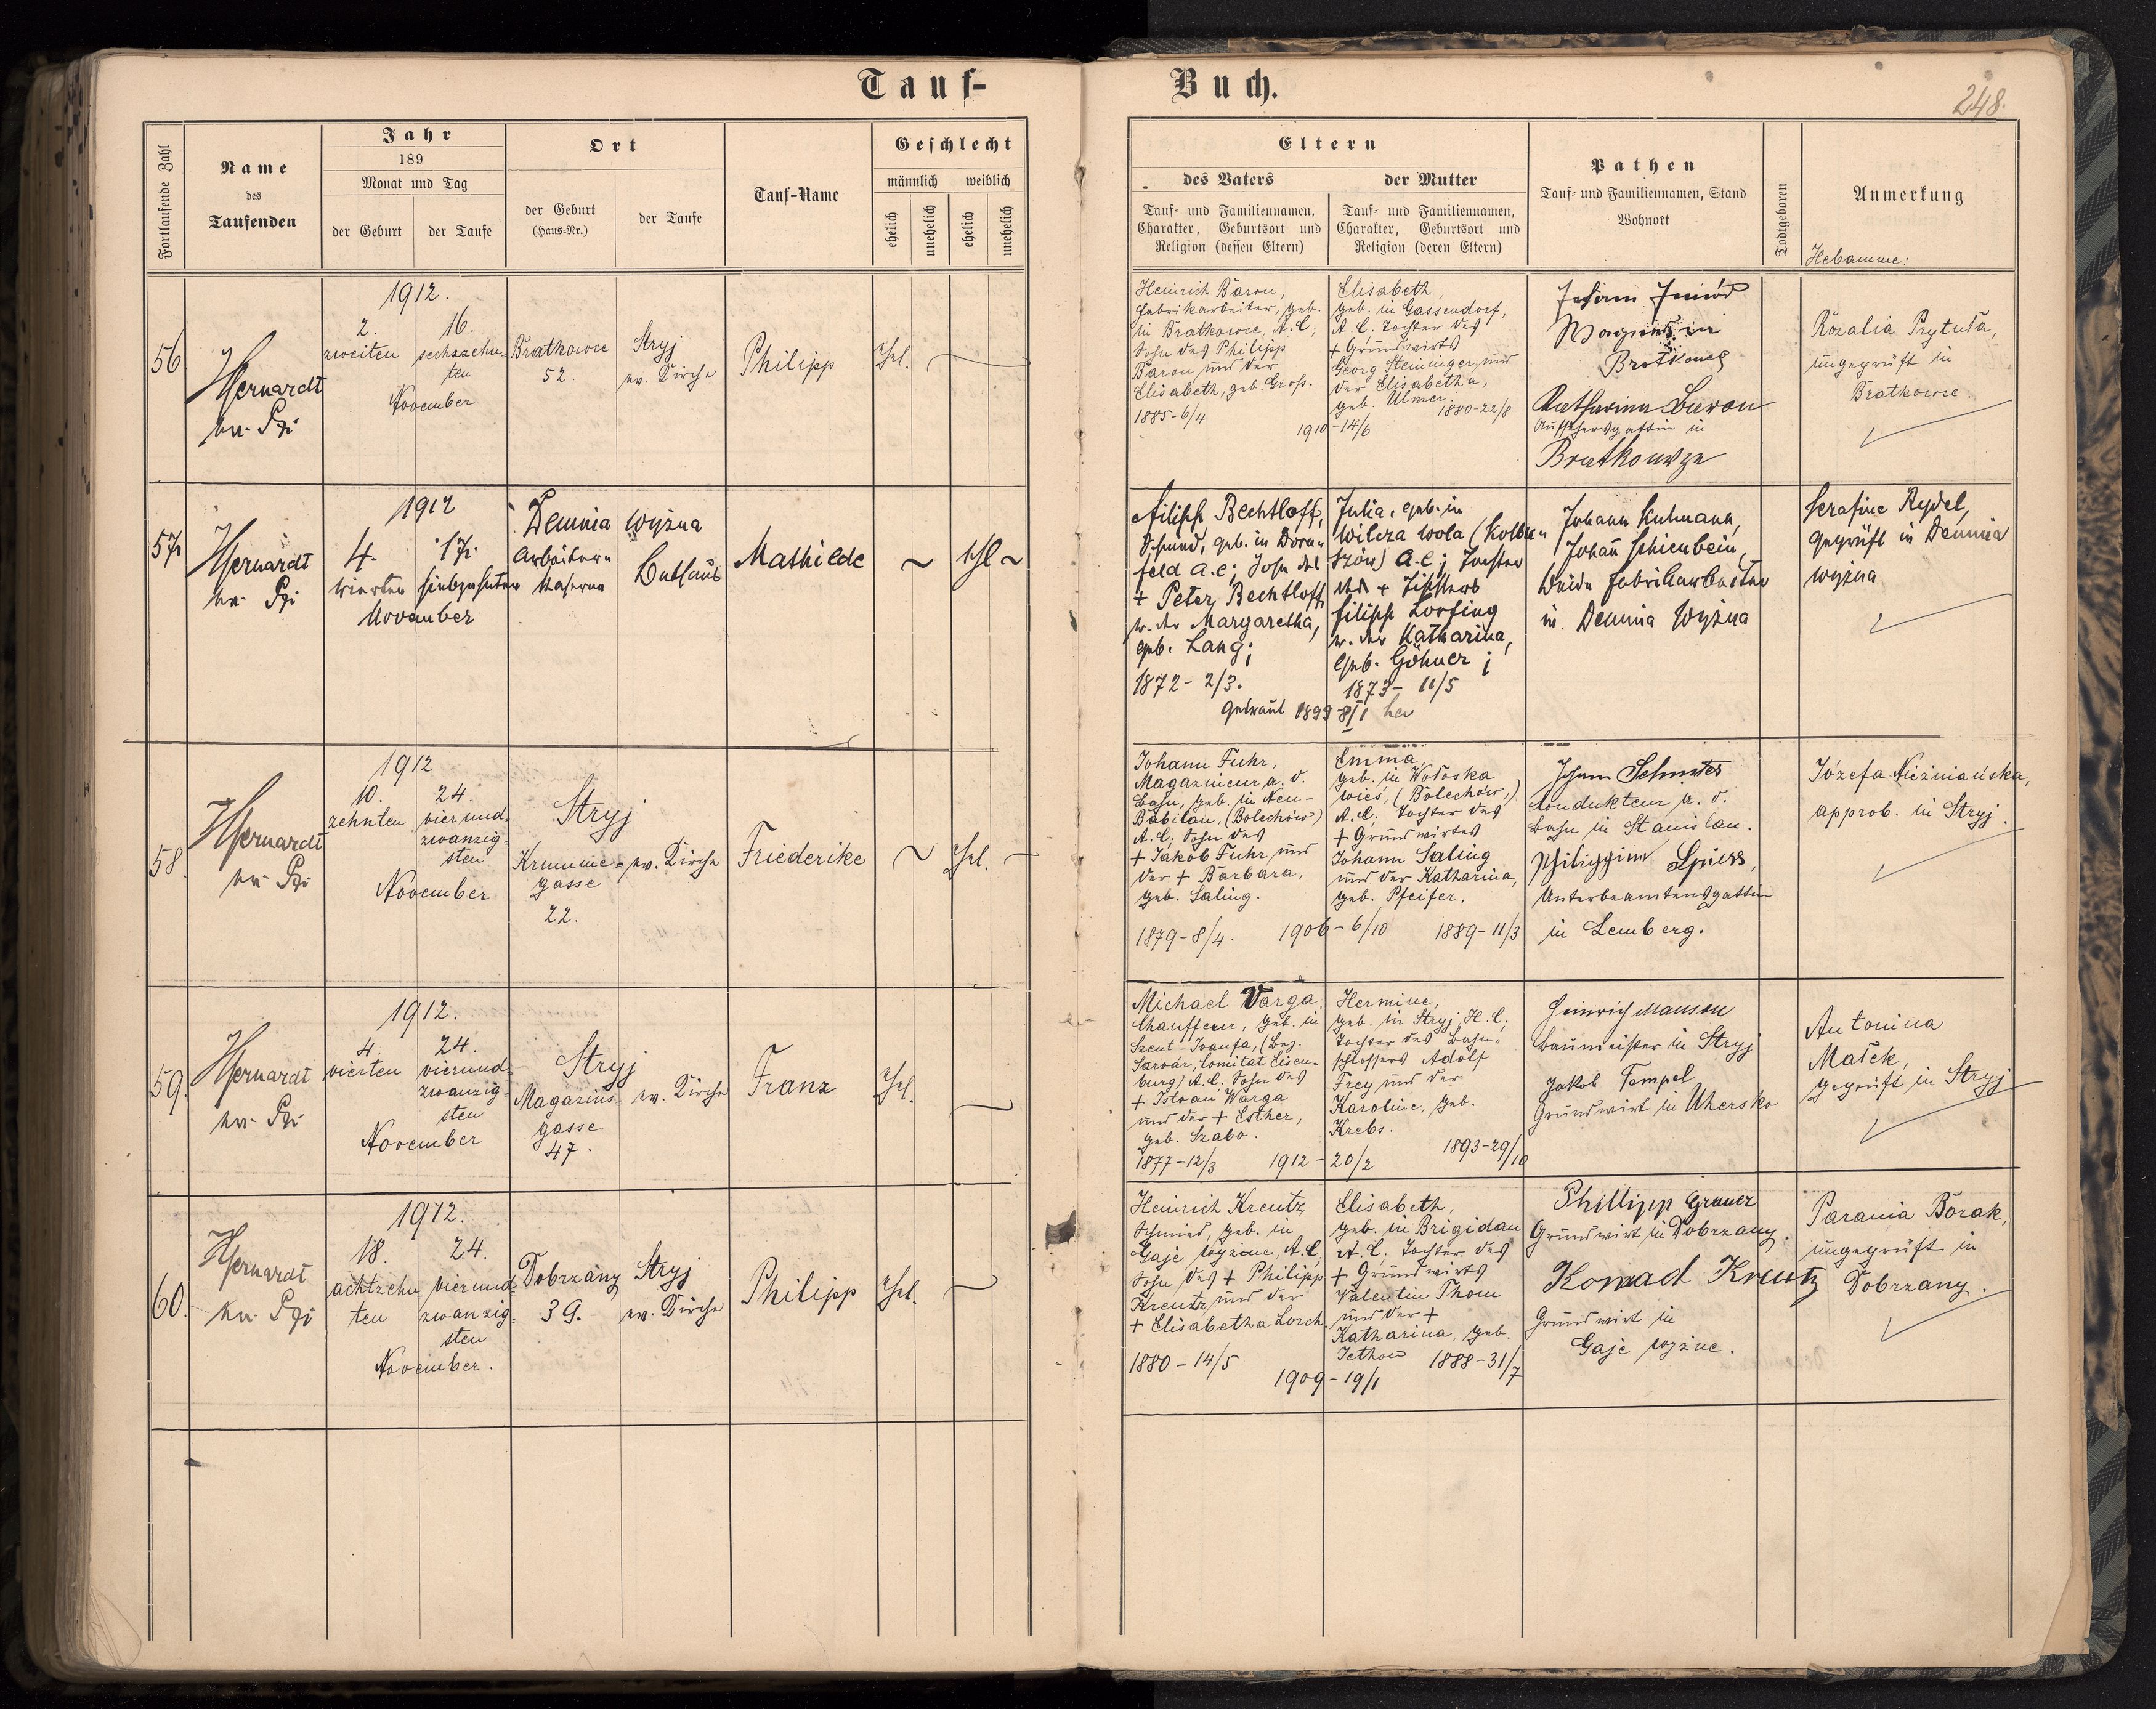 Tauf-
Buch.
248.
Fortlaufende Zahl
Name
des
Taufenden
Jahr
189
Monat und Tag
der Geburt
der Taufe
Ort
der Geburt
(Haus-Nr.)
der Taufe
Tauf-Name
Geschlecht
männlich weiblich
ehelich
unehelich
ehelich
unehelich
Eltern
des Vaters
der Mutter
Tauf- und Familiennamen,
Charakter, Geburtsort und
Religion (dessen Eltern)
Tauf- und Familiennamen,
Charakter, Geburtsort und
Religion (deren Eltern)
Pathen
Tauf- und Familiennamen, Stand
Wohnort
Todtgeboren
Anmerkung
Hebamme:
56
1912.
2.
zweiten
16.
sechszehn
ten
November
Bratkowce
52.
Stryj
ev. Kirche
Philipp
Ehel.
Heinrich Baron,
Fabrikarbeiter, geb.
in Bratkowce, A.C.;
Sohn des Philipp
Baron und der
Elisabeth, geb. Groß.
1885-6/4
1910-14/6
Elisabeth,
geb. in Gassendorf,
A.C. Tochter des
+ Grundwirts
Georg Steininger und
der Elisabetha,
geb. Ulmer.
1880-22/8
Katharina Baron
Aufsehersgattin in
Rozalia Prytuła,
ungeprüft in
Bratkowce.
57
1912
4.
vierten
17.
siebzehnten
November
Demnia wyżna
Arbeitern
Kaserna
Bethaus
Mathilde
Ehl
Filipp Bechtloff,
Schmid, geb. in Dorn-
feld A.C.; Sohn des
+ Peter Bechtloff
u. der Margaretha,
geb. Lang;
1872-2/3.
Getraut 1899-8/I her
Julia, geb. in
Wilcza wola (Kolbu-
szów) A.C.; Tochter
des + Tischlers
Filipp Lorfing
u. der Katharina,
geb. Göhner;
1873-11/5
Johann Kuhmann,
Johann Schienbein,
beide Fabrikarbeiter
in Demnia Wyżna
Serafine Rydel,
geprüft in Demnia
wyżna
58.
1912
10.
zehnten
24.
vierund
zwanzig-
sten
November
Stryj
Krumme-
gasse
22.
ev. Kirche
Friederike
Ehel.
Johann Fuhr,
Magazineur a. d.
Bahn, geb. in Neu-
Babilon, (Bolechów)
A.C. Sohn des
+ Jakob Fuhr und
der + Barbara,
geb. Saling.
1879-8/4.
1906-6/10
Emma,
geb. in Wołoska
wieś, (Bolechów,)
A.C. Tochter des
+ Grundwirtes
Johann Saling
und der Katharina,
geb. Pfeifer.
1889-11/3
Kondukteur a. d.
Bahn in Stanislau.
Philippine Spiess,
Unterbeamtensgattin
in Lemberg.
Józefa Nieżniańska,
approb. in Stryj.
59.
1912.
4.
vierten
24.
vierund-
zwanzig-
sten
November
Stryj
Magazins-
gasse
47.
ev. Kirche
Franz
Ehel.
Michael Varga,
Chauffeur, geb. in
Szent-Ivanfa, (Bez.
Sarvár, Comitat Eisen-
burg) A.C. Sohn des
+ Istvan Warga
und der + Esther,
geb. Szabo.
1877-12/3
1912-20/2
Hermine,
geb. in Stryj, H.C.
Tochter des Bahn-
schlossers Adolf
Frey und der
Karoline, geb.
Krebs.
1893-29/10
Heinrich Manson
Baumeister in Stryj
Jakob Tempel
Grundwirt in Uhersko
Antonina
Małek,
geprüft in Stryj
60.
1912.
18.
achtzehn
ten
24.
vierund
zwanzig-
sten
November.
Dobrzany
39.
Stryj
ev. Kirche
Philipp
Ehel.
Heinrich Kreutz
Schmied, geb. in
Gaje wyżne, A.C.
Sohn des + Philipp
Kreutz und der
+ Elisabetha Lorch.
1880-14/5
1909-19/1
Elisabeth,
geb. in Brigidau
A.C. Tochter des
+ Grundwirts
Valentin Thom
und der +
Katharina, geb.
1888-31/7
Phillipp Grauer
Grundwirt in Dobrzany.
Konrad Kreutz
Grundwirt in
Gaje wyżne.
Parania Borak,
ungeprüft in
Dobrzany.